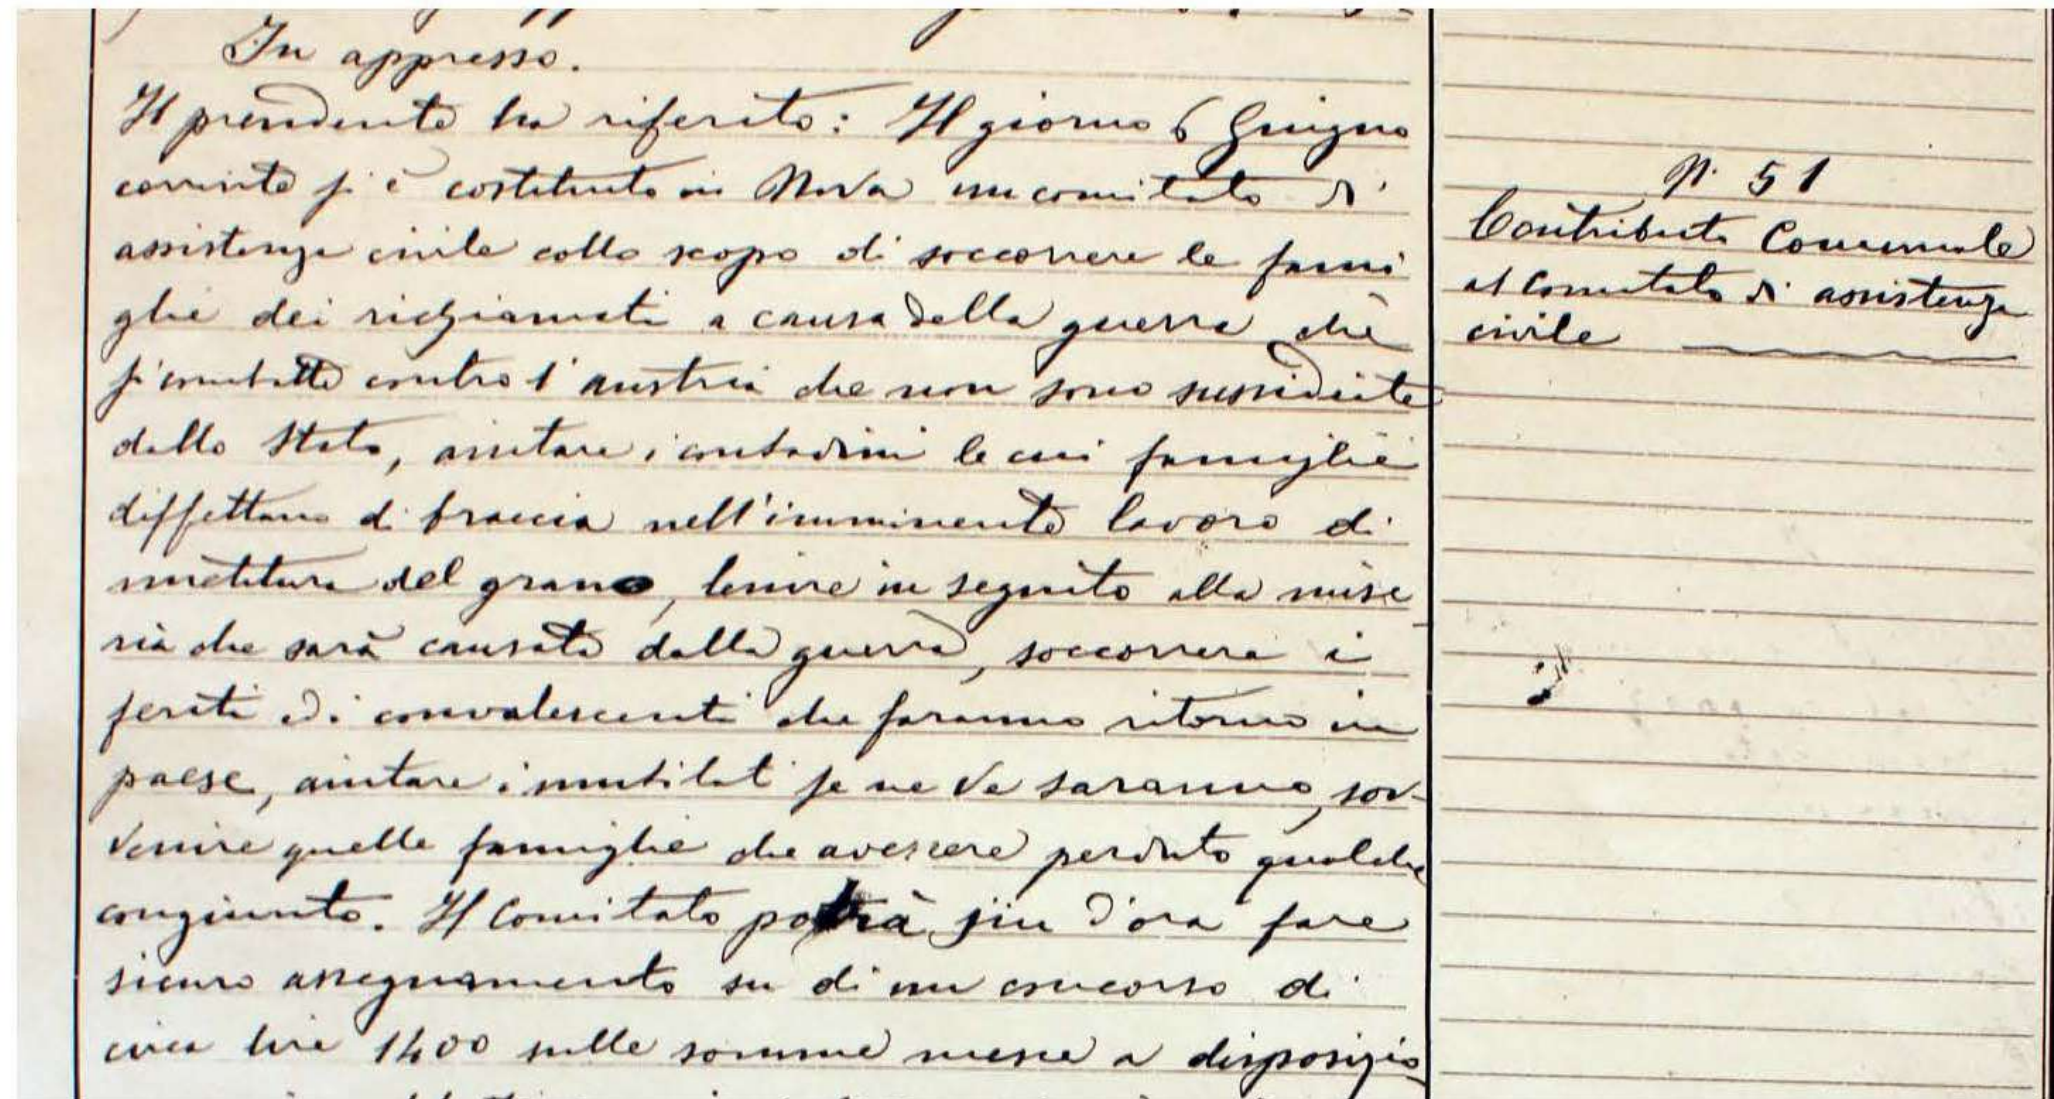 In appresso.
Il presidente ha riferito: Il giorno 6 Giugno
corrente si è costituito in Nova un comitato di
assistenza civile collo scopo di soccorrere le fami
glie dei richiamati a causa della guerra che
si combatte contro l'austria che non sono sussidiate
dallo Stato, aiutare i contadini le cui famiglie
diffettano di braccia nell'imminente lavoro di
mietitura del grano, lenire in seguito alla mise
ria che sarà causata dalla guerra, soccorrere i
feriti ed i convalescenti che faranno ritorno in
paese, aiutare i mutilati se ve ne saranno, sov-
venire quelle famiglie che avessero perduto qualche
congiunto. Il Comitato potrà fin d'ora fare
sicuro assegnamento su di un concorso di
circa lire 1400 sulle somme messe a disposizio
N. 51
Contributo Comunale
al Comitato di assistenza
civile